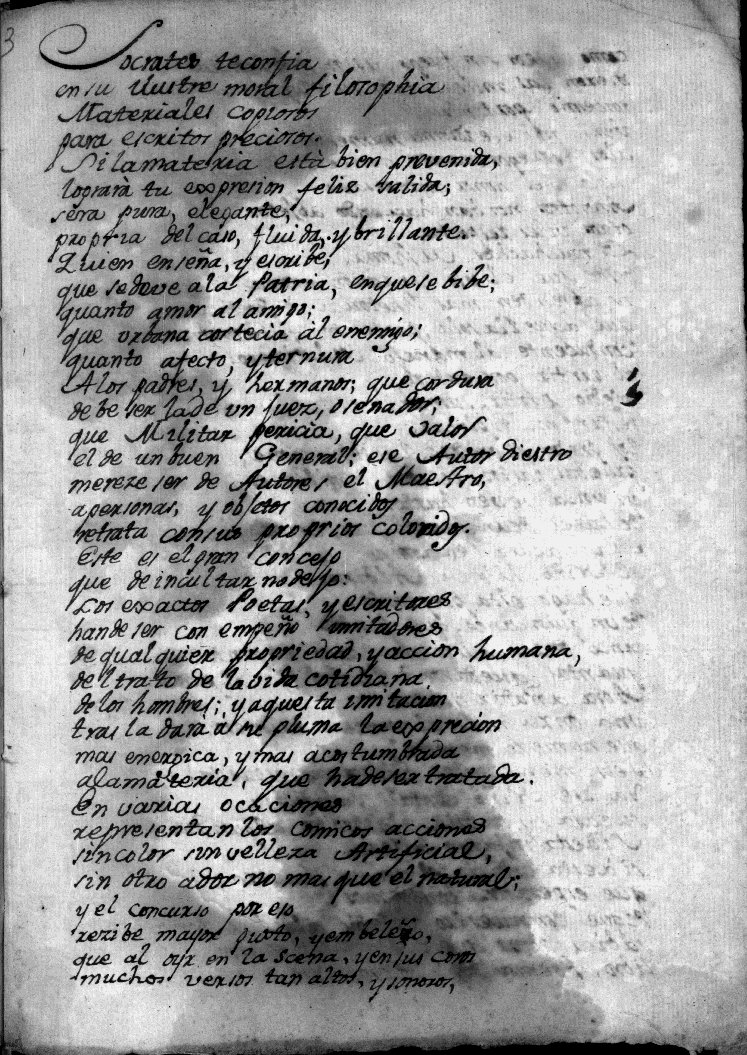 3
Socrates te confia
en su ilustre moral filosophia
Materiales copiosos
para escritos preciosos.
Si la materia està bien prevenida,
lograrà tu expresion feliz salida;
serà pura, elegante,
propria del caso, fluida, y brillante.
Quien enseña, y escribe,
que sedeve a la Patria, enquese bibe;
quanto amor al amigo;
que urbana cortecia àl enemigo;
quanto afecto, y ternura
A los padres, y hermanos; que cordura
debe ser lade un Juez, o senador;
que Militar pericia, que valor
el de un buen General; ese Autor diestro
mereze ser de Autores el Maestro,
apersonas, y objctos conocidos
retrata consus proprios coloridos.
Este es el gran concejo
que de incultar no dejo:
Los exactos Poetas, y escritores
hande ser con empeño imitadores
de qualquier propriedad, y accion humana,
del trato de la vida cotidiana
de los hombres; y aquesta imitacion
tras la darà à su pluma la exprecion
mas energica, y mas acostumbrada
ala materia, que hadeser tratada.
En varias ocaciones
representan los comicos acciones
sin color sin velleza Artificial,
sin otro ador no mas que el natural;
y el concurso por eso
rezibe mayor gusto, y embeleño,
que al oyr en la Scena, y en sus coros
muchos versos tan altos, y sonoros,